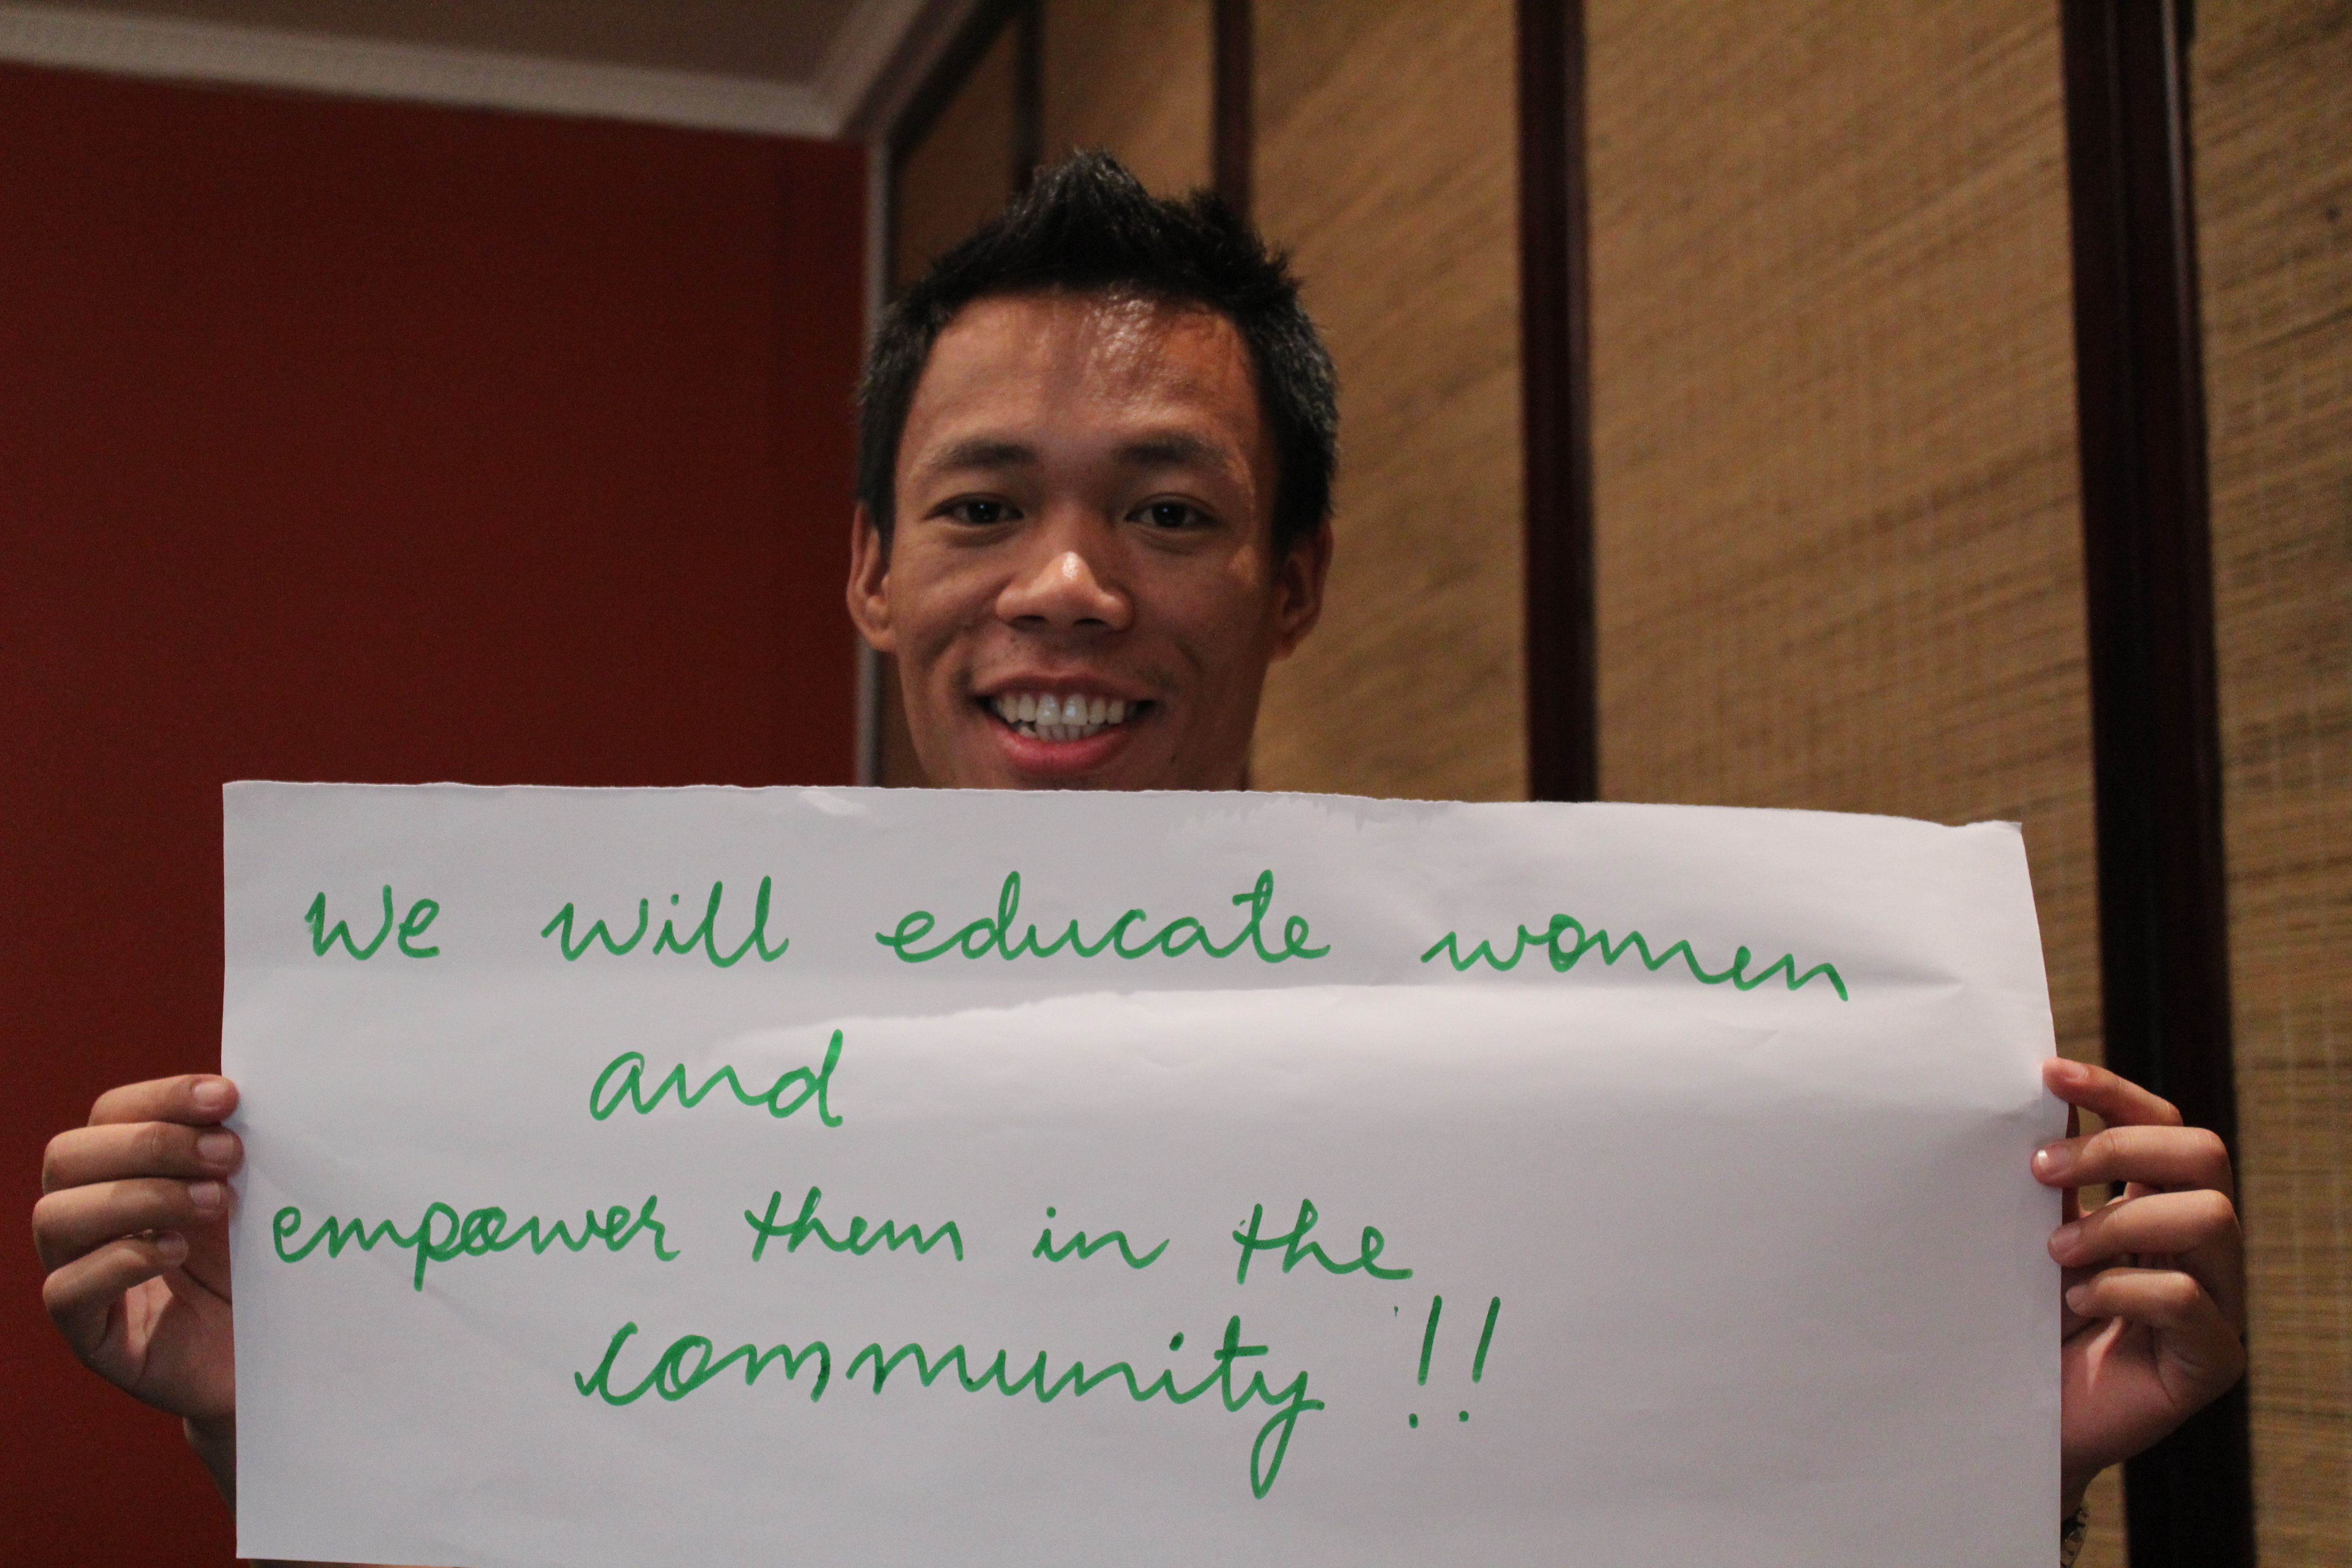 We will educate women
and
empower them in the
community !!